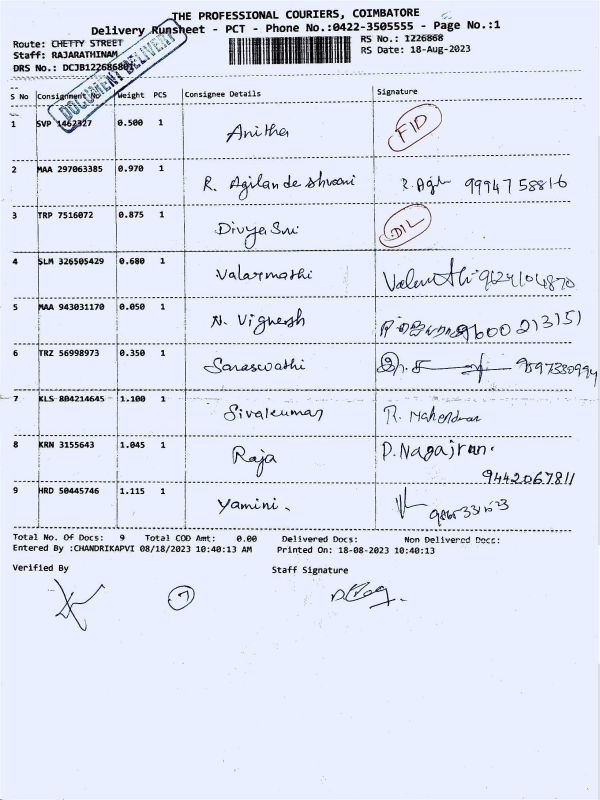 THE PROFESSIONAL COURIERS, COIMBATORE
Delivery Runsheet - PCT - Phone No.:0422-3505555 - Page No.:1
Route: CHETTY STREET
RS No.: 1226868
Staff: RAJARATHINAM
RS Date: 18-Aug-2023
DRS No.: DCJB122686801
DOCUMENT DELIVERY
S No Consignment No Weight PCS Consignee Details Signature
1 SVP 1462327 0.500 1 Anitha FID
2 MAA 297063385 0.970 1 R. Agilandeshwari R. Agil 9994758816
3 TRP 7516072 0.875 1 Divya Sri DIL
4 SLM 326505429 0.680 1 Valarmathi
5 MAA 943031170 0.050 1 N. Vignesh 9600213151
6 TRZ 56998973 0.350 1 Saraswathi 9597380994
7 KLS 804214645 1.100 1 Sivakumar R. Mahendran
8 KRN 3155643 1.045 1 Raja D. Nagajran.
9442067811
9 HRD 50445746 1.115 1 Yamini.
Total No. Of Docs: 9 Total COD Amt: 0.00 Delivered Docs: Non Delivered Docs:
Entered By :CHANDRIKAPVI 08/18/2023 10:40:13 AM Printed On: 18-08-2023 10:40:13
Verified By Staff Signature
7